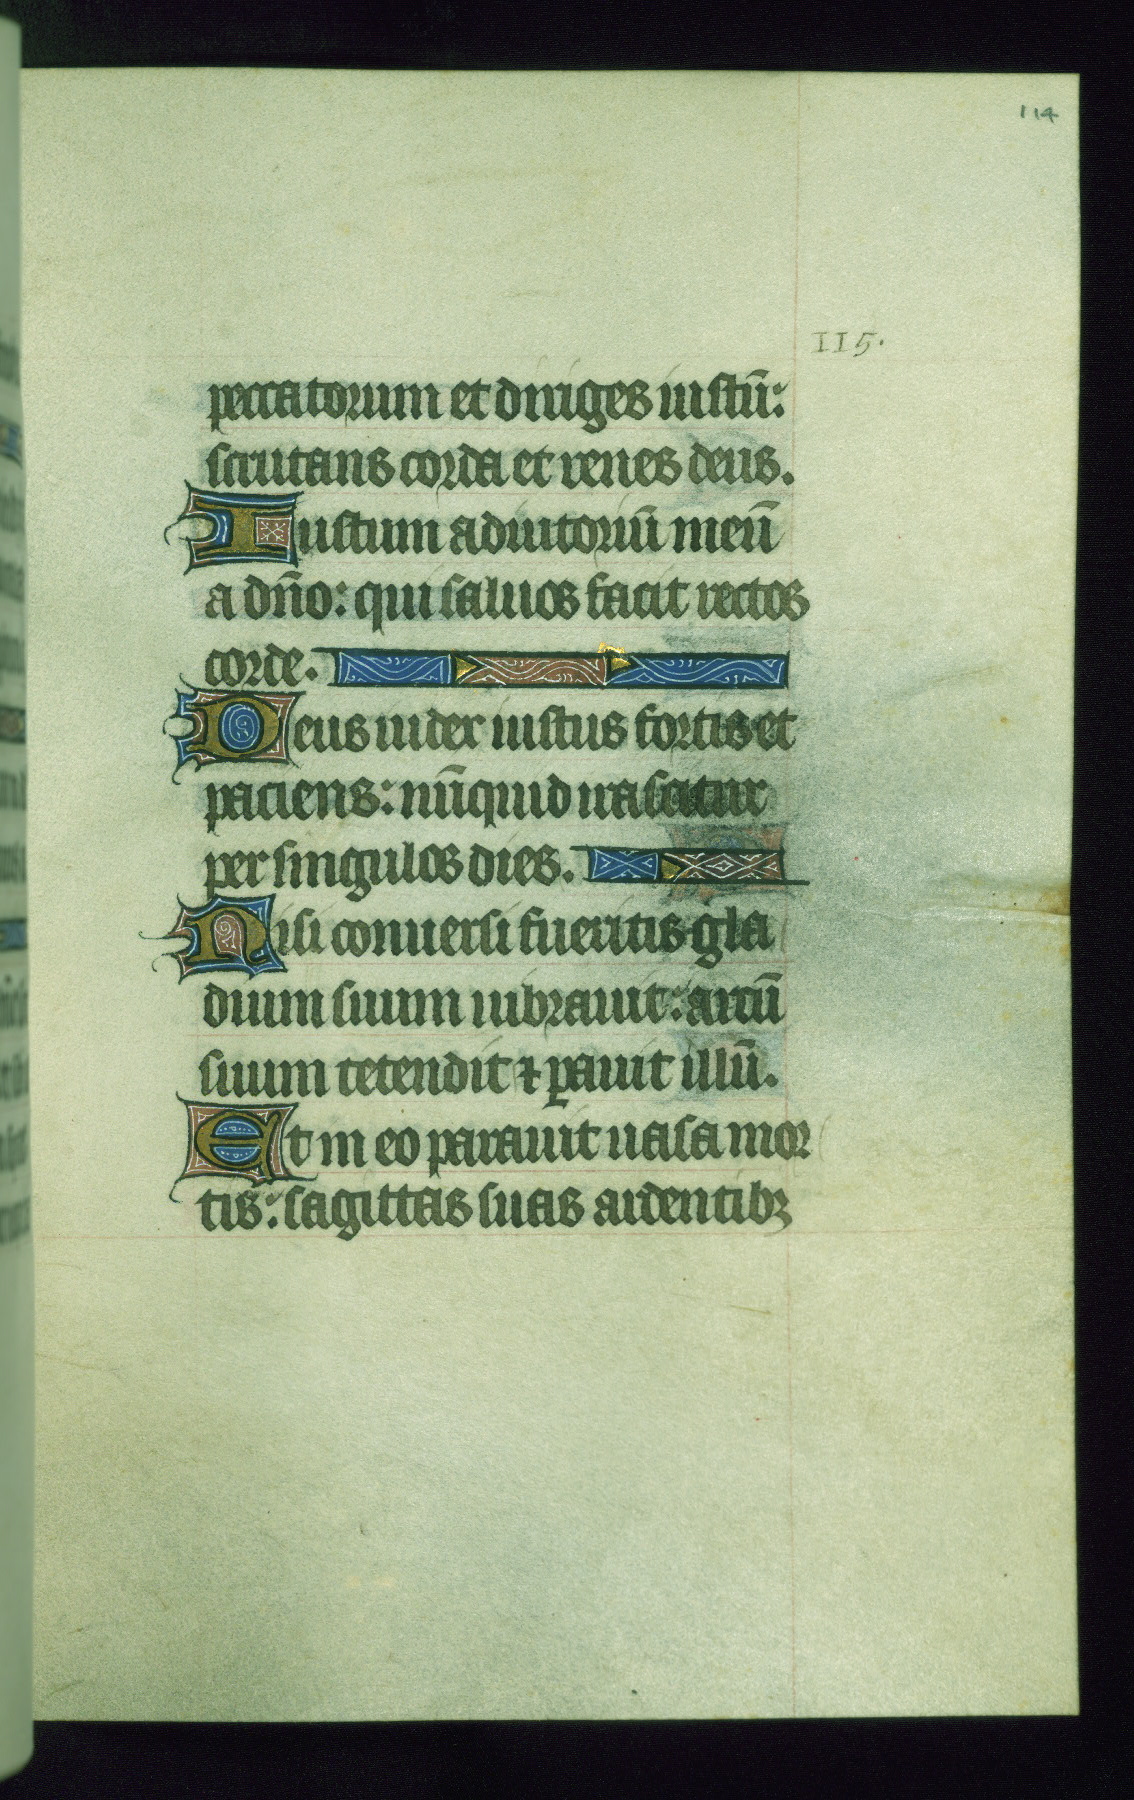 114
115.
peccatorum et diriges iustū:
scrutans corda et renes deus.
Iustum adiutoriū meū
a dn̄o: qui saluos facit rectos
corde.
Deus iudex iustus fortis et
paciens: nūquid irascitur
per singulos dies.
Nisi conuersi fueritis gla
dium suum uibrauit: arcū
suum tetendit ⁊ ꝑauit illū.
Et in eo parauit uasa mor
tis: sagittas suas ardentibꝫ